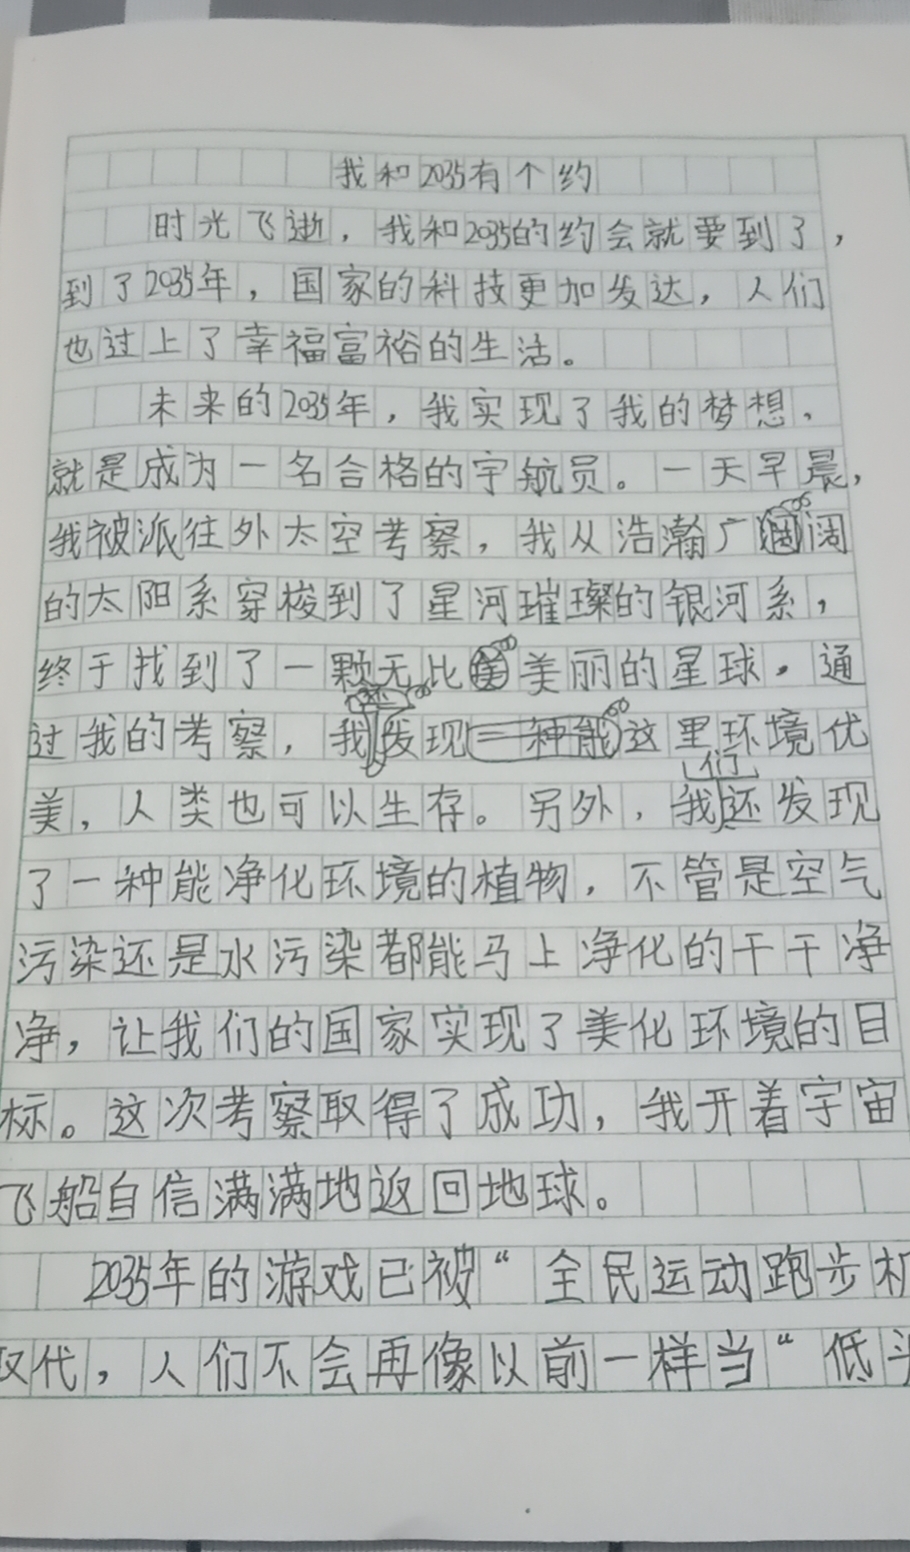 我和2035有个约
时光飞逝，我和2035的约会就要到了，
到了2035年，国家的科技更加发达，人们
也过上了幸福富裕的生活。
未来的2035年，我实现了我的梦想，
就是成为一名合格的宇航员。一天早晨，
我被派往外太空考察，我从浩瀚广阔
的太阳系穿梭到了星河璀璨的银河系，
终于找到了一颗无比美丽的星球。通
过我的考察，我发现这里环境优
美，人类也可以生存。另外，我们还发现
了一种能净化环境的植物，不管是空气
污染还是水污染都能马上净化的干干净
净，让我们的国家实现了美化环境的目
标。这次考察取得了成功，我开着宇宙
飞船自信满满地返回地球。
2035年的游戏已被“全民运动跑步机
取代，人们不会再像以前一样当“低头